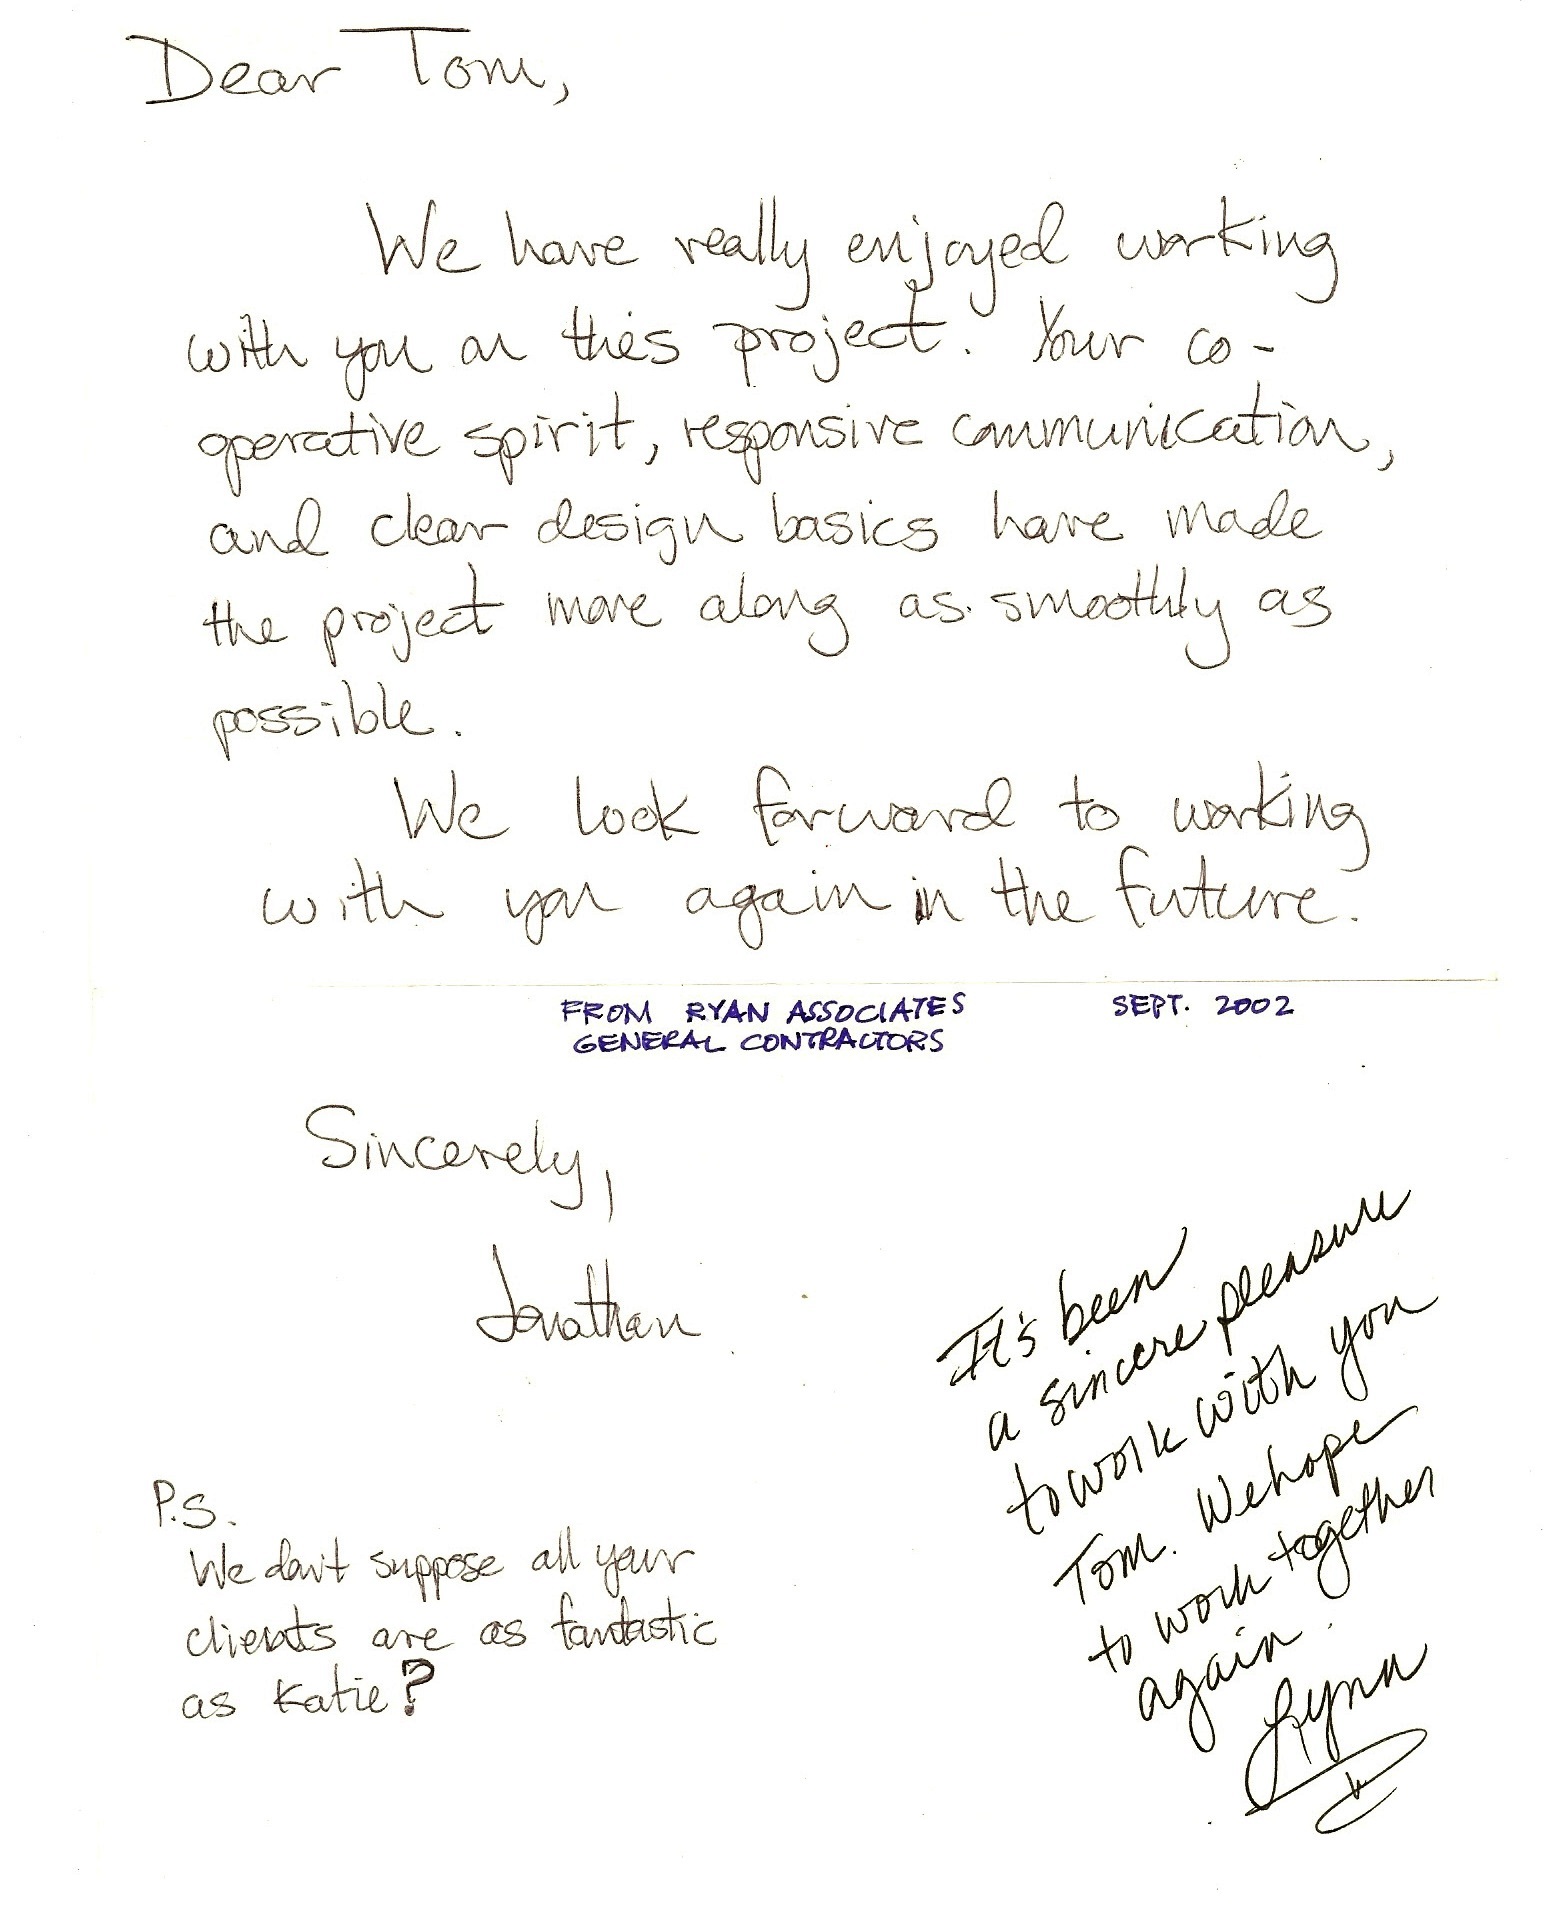 Dear Tom,
We have really enjoyed working
with you on this project. Your co-
operative spirit, responsive communication,
and clear design basics have made
the project move along as smoothly as
possible.
We look forward to working
with you again in the future.
FROM RYAN ASSOCIATES SEPT. 2002
GENERAL CONTRACTORS
Sincerely,
Jonathan
It's been
a sincere pleasure
to work with you
Tom. We hope
to work together
again.
Lynn
P.S.
We don't suppose all your
clients are as fantastic
as Katie?